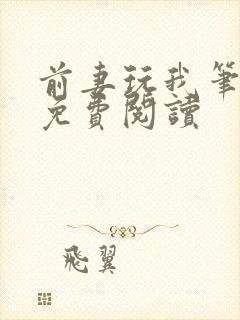 前妻玩我筆
免費閱讀
飛翼